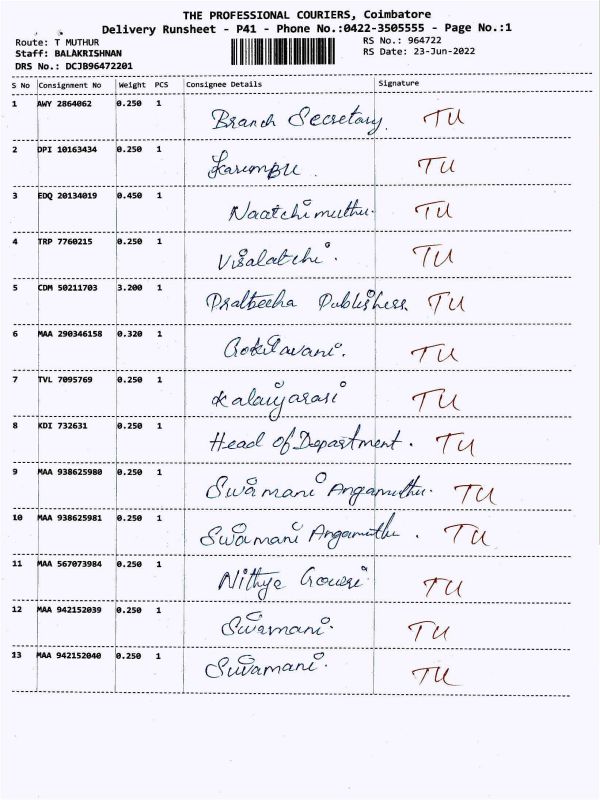 THE PROFESSIONAL COURIERS, Coimbatore
Delivery Runsheet - P41 - Phone No.:0422-3505555 - Page No.:1
Route: T MUTHUR RS No.: 964722
Staff: BALAKRISHNAN RS Date: 23-Jun-2022
DRS No.: DCJB96472201
S No Consignment No Weight PCS Consignee Details Signature
1 AWY 2864062 0.250 1 Branch Secretary TU
2 DPI 10163434 0.250 1 Karumpu TU
3 EDQ 20134019 0.450 1 Naatchimuthu. TU
4 TRP 7760215 0.250 1 Visalatchi. TU
5 CDM 50211703 3.200 1 Publishers TU
6 MAA 290346158 0.320 1 Gokilavani. TU
7 TVL 7095769 0.250 1 Kalaiyarasi TU
8 KDI 732631 0.250 1 Head of Department. TU
9 MAA 938625980 0.250 1 Sivamani Angamuthu. TU
10 MAA 938625981 0.250 1 Sivamani Angamuthu. TU
11 MAA 567073984 0.250 1 Nithya Gowri TU
12 MAA 942152039 0.250 1 Sivamani. TU
13 MAA 942152040 0.250 1 Sivamani. TU